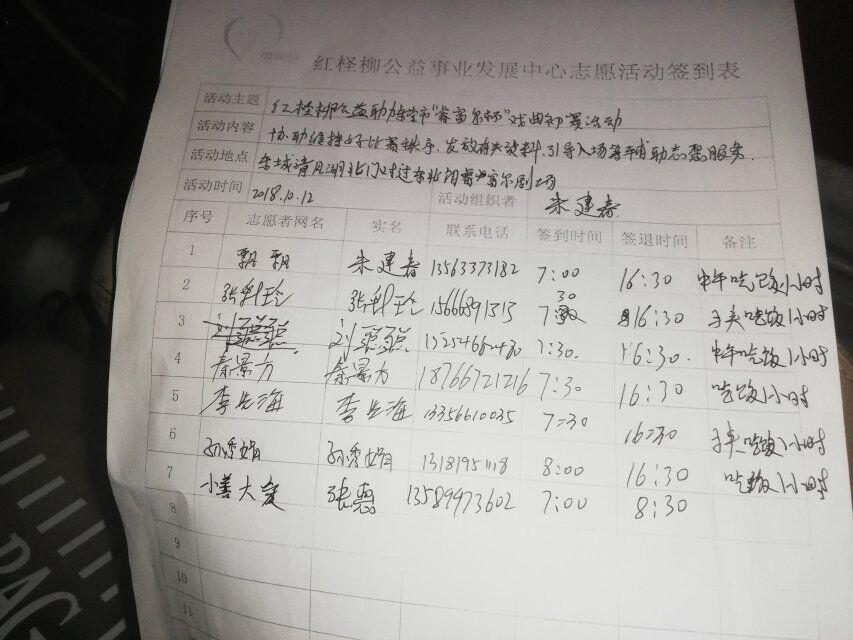 红柽柳公益事业发展中心志愿活动签到表
活动主题 红柽柳公益助力东营市"睿富尔杯"戏曲初赛活动
活动内容 协助维持好比赛秩序,发放有关资料,引导入场等辅助志愿服务.
活动地点 东城清风湖北门过东北角睿富尔剧场
活动时间 2018.10.12 活动组织者 朱建春
序号 志愿者网名 实名 联系电话 签到时间 签退时间 备注
1 朝朝 朱建春 13563373182 7:00 16:30 中午吃饭1小时
2 张利玲 张利玲 15666891515 7:30 16:30 吃饭1小时
3 刘聪聪 刘聪聪 7:30. 16:30. 中午吃饭1小时
4 秦景方 秦景方 18766721216 7:30 16:30 吃饭1小时
5 李长海 李长海 13356610035 7=30 16=30 吃饭1小时
6 孙秀娟 孙秀娟 13181951118 8:00 16:30 吃饭1小时
7 小善大爱 张惠 13589973602 7:00 8:30
8
9
10
11